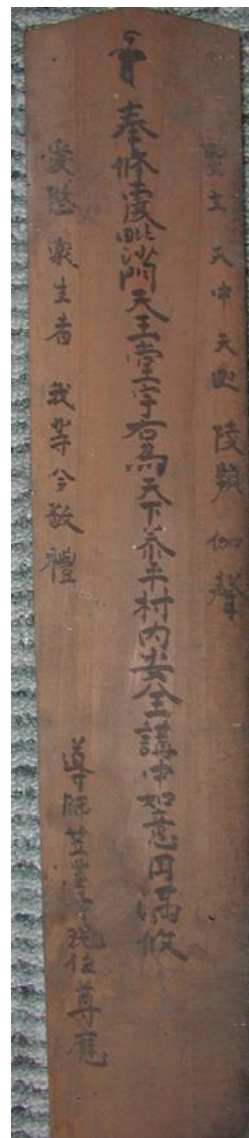 聖主天中天迦陵頻伽聲
奉修覆毗沙門天王堂宇右為天下泰平村内安全講中如意円満攸
愛愍衆生者我等今敬禮
導師 寺現住尊應